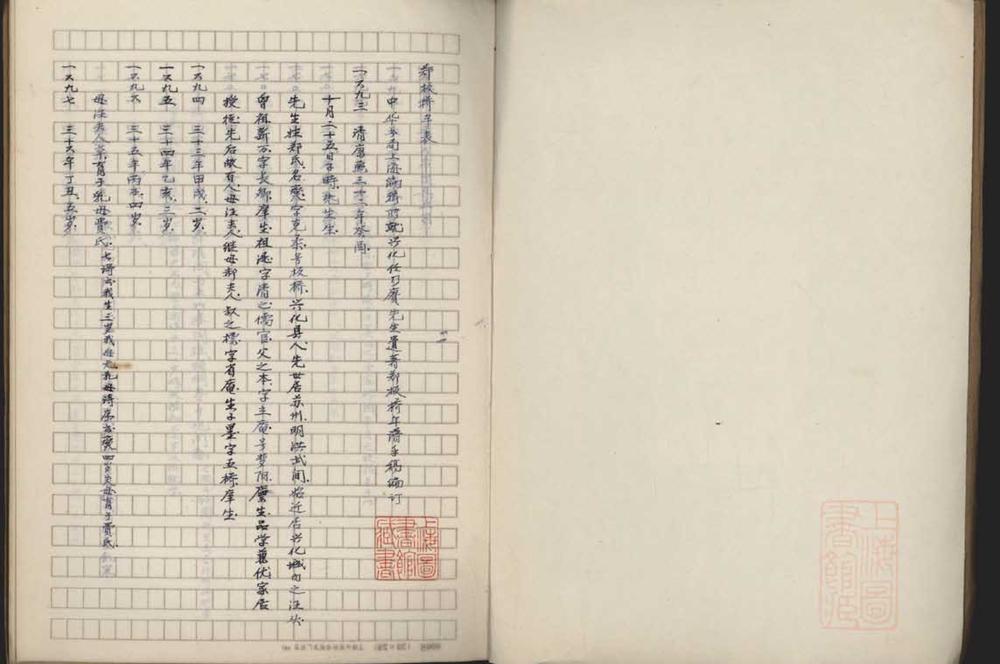 郑板桥年表
中华书局上海编辑所就兴化任乃赓先生遗著郑板桥年谱手稿编订
一六九三 清康熙三十二年癸酉
十月二十五日子时先生生
先生姓郑氏名燮字克柔号板桥兴化县人先世居苏州明洪武间始迁居兴化城内之汪头
曾祖新万字长卿庠生祖湜字清之儒官父之本字立庵号梦阳廪生品学兼优家居
授徒先后数百人母汪夫人继母郝夫人叔之标字省庵生子墨字五桥庠生
一六九四 三十三年甲戌二岁
一六九五 三十四年乙亥三岁
一六九六 三十五年丙子四岁
一六九七 三十六年丁丑五岁
母汪夫人卒育于乳母费氏
上海图书馆藏书
上海图书馆藏